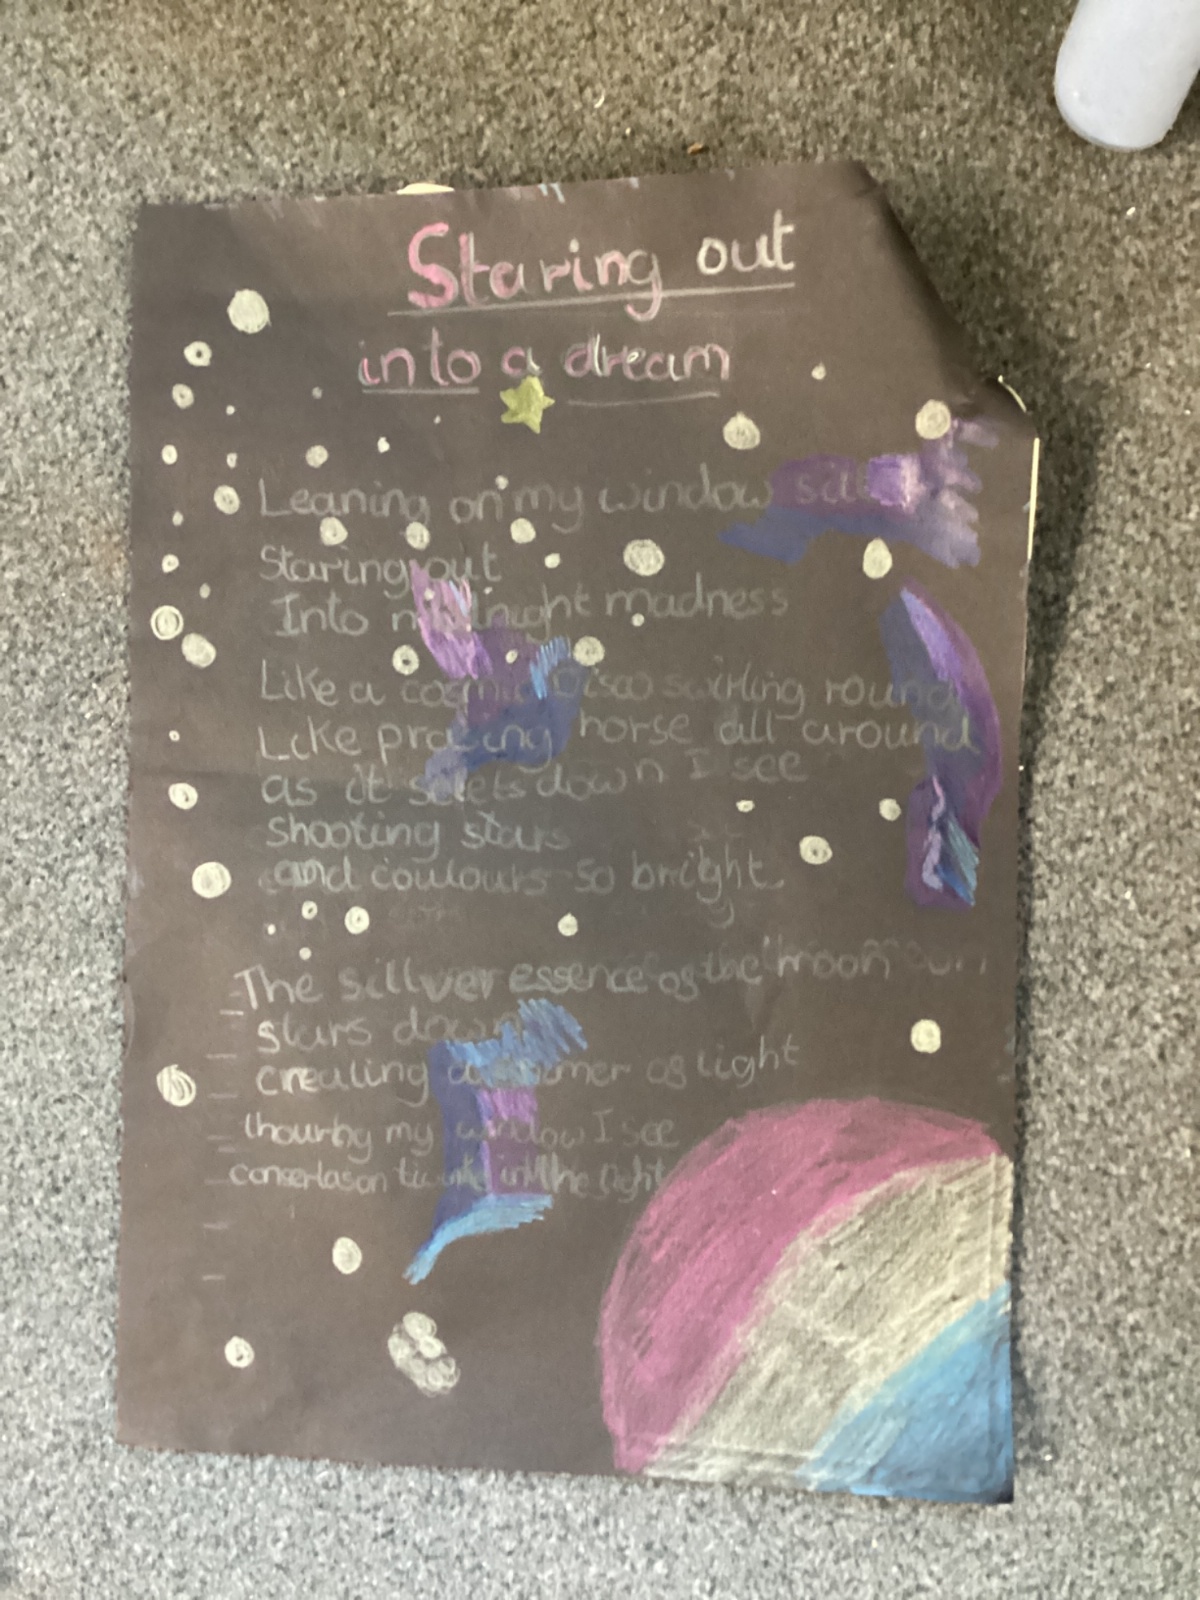 Staring out
into a dream
Leaning on my window sill
Staring out
Into midnight madness
Like a cosmic Disco swirling round
Like pracing horse all around
as it setets down I see
shooting stars
and coulours so bright
The sillver essence of the moon
stars down
creating a shimer of light
my window I see
in the light